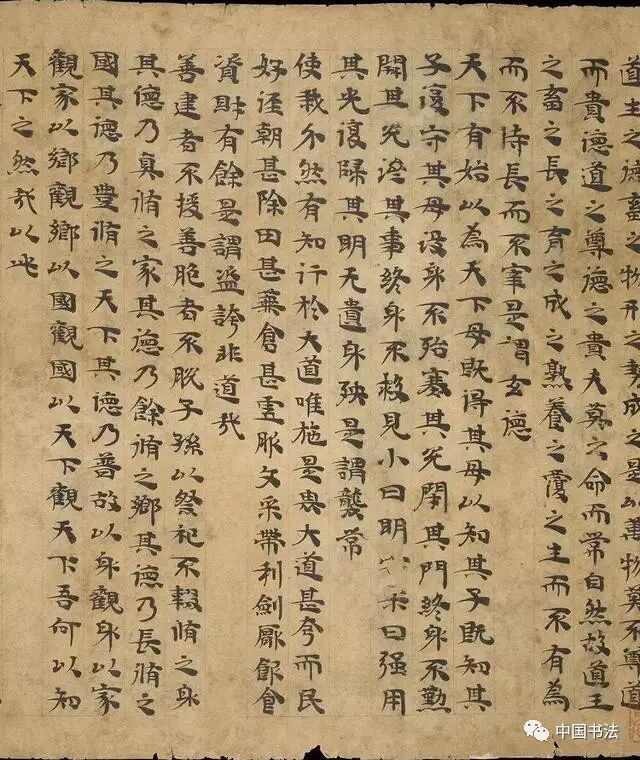 道生之德畜之物形之勢成之是以萬物莫不尊道
而貴德道之尊德之貴夫莫之命而常自然故道生
之畜之長之育之成之熟養之覆之生而不有為
而不恃長而不宰是謂玄德
天下有始以為天下母既得其母以知其子既知其
子復守其母沒身不殆塞其兌閉其門終身不勤
開其兌濟其事終身不救見小曰明柔曰強用
其光復歸其明无遺身殃是謂襲常
使我介然有知行於大道唯施是畏大道甚夸而民
好徑朝甚除田甚蕪倉甚虛服文采帶利劍厭飲食
資財有餘是謂盜誇非道哉
善建者不拔善抱者不脫子孫以祭祀不輟脩之身
其德乃真脩之家其德乃餘脩之鄉其德乃長脩之
國其德乃豐脩之天下其德乃普故以身觀身以家
觀家以鄉觀鄉以國觀國以天下觀天下吾何以知
天下之然哉以此
中国书法